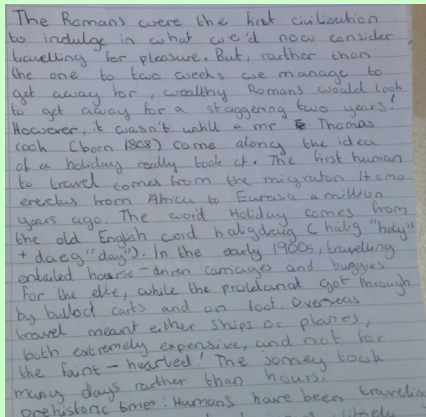 The Romans were the first civilisation
to indulge in what we'd now consider
travelling for pleasure. But, rarther than
the one to two weeks we manage to
get away for, wealthy Romans would look
to get away for a staggering two years!
However, it wasn't untill a mr Thomas
cook (born 1808) came along the idea
of a holiday really took of. The first human
to travel comes from the migration Homo
erectus from Africa to Eurasia a million
years ago. The word Holiday comes from
the old English word haligdaeg (halig "holy"
+ daeg "day"). In the early 1900s, travelling
entailed hourse-driven carriages and buggies
for the elite, while the proletariat got through
by bullock carts and on foot. Overseas
travel meant either ships or planes,
both extremely expensive, and not for
the faint-hearted! The took
many days rarther than hours.
prehistoric times: Humans have been traveling